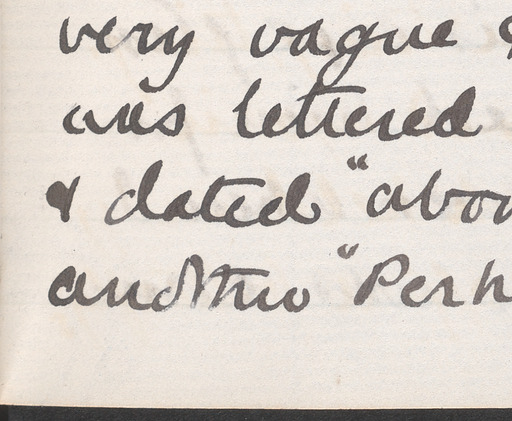 very vague
was lettered
& dated "abou
"Perh